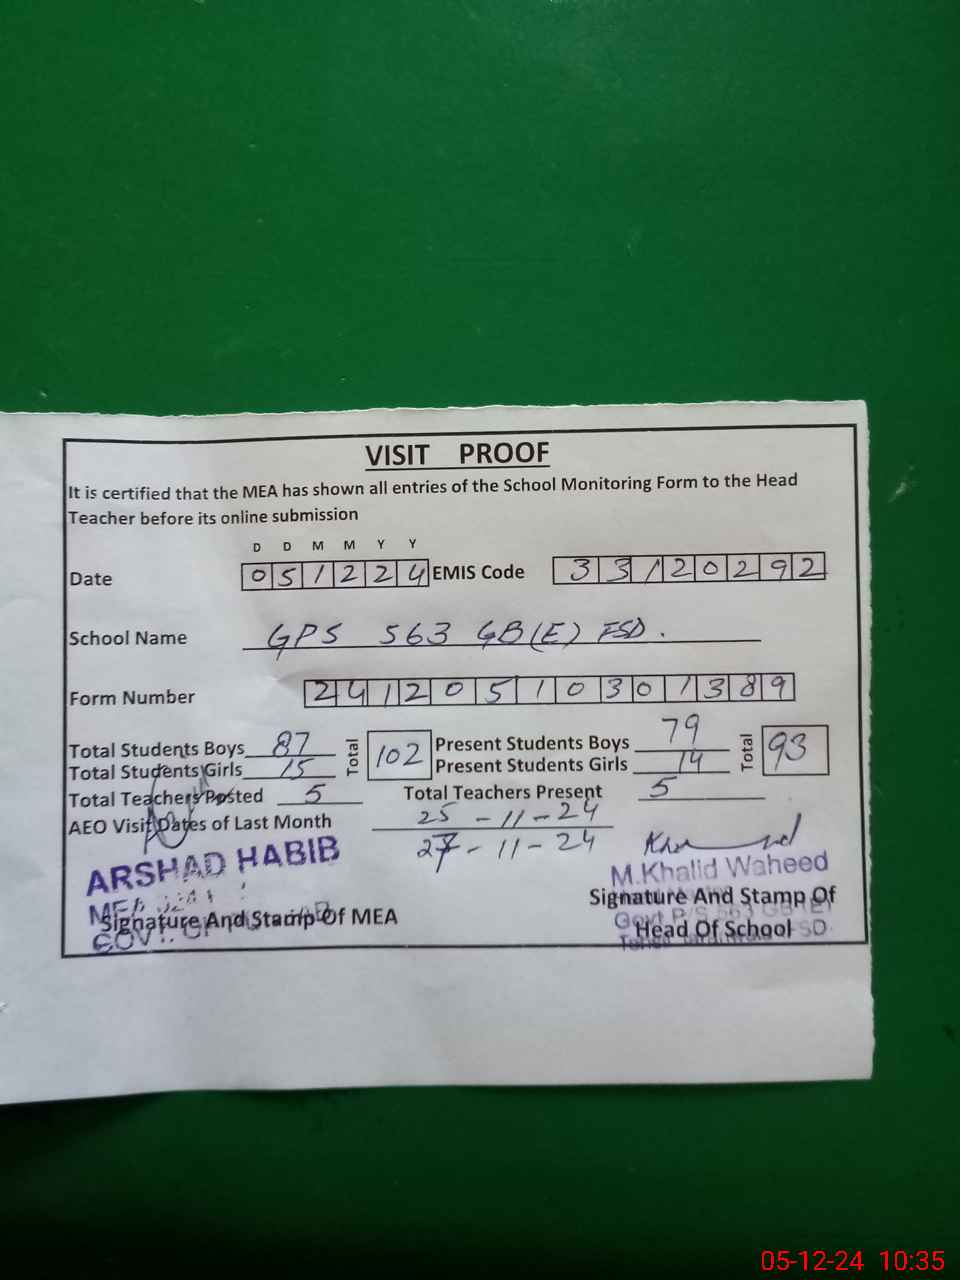 VISIT PROOF
It is certified that the MEA has shown all entries of the School Monitoring Form to the Head
Teacher before its online submission
D D M M Y Y
Date 051224 EMIS Code 33120292
School Name GPS 563 GB(E) FSD.
Form Number 24120510301389
Total Students Boys 87 Total 102 Present Students Boys 79 Total 93
Total Students Girls 15 Present Students Girls 14
Total Teachers Posted 5 Total Teachers Present 5
AEO Visit Dates of Last Month 25-11-24
27-11-24
ARSHAD HABIB
M.Khalid Waheed
Signature And Stamp Of MEA
Signature And Stamp Of
Head Of School
Govt P/S 563 GB (E)
FSD.
05-12-24 10:35